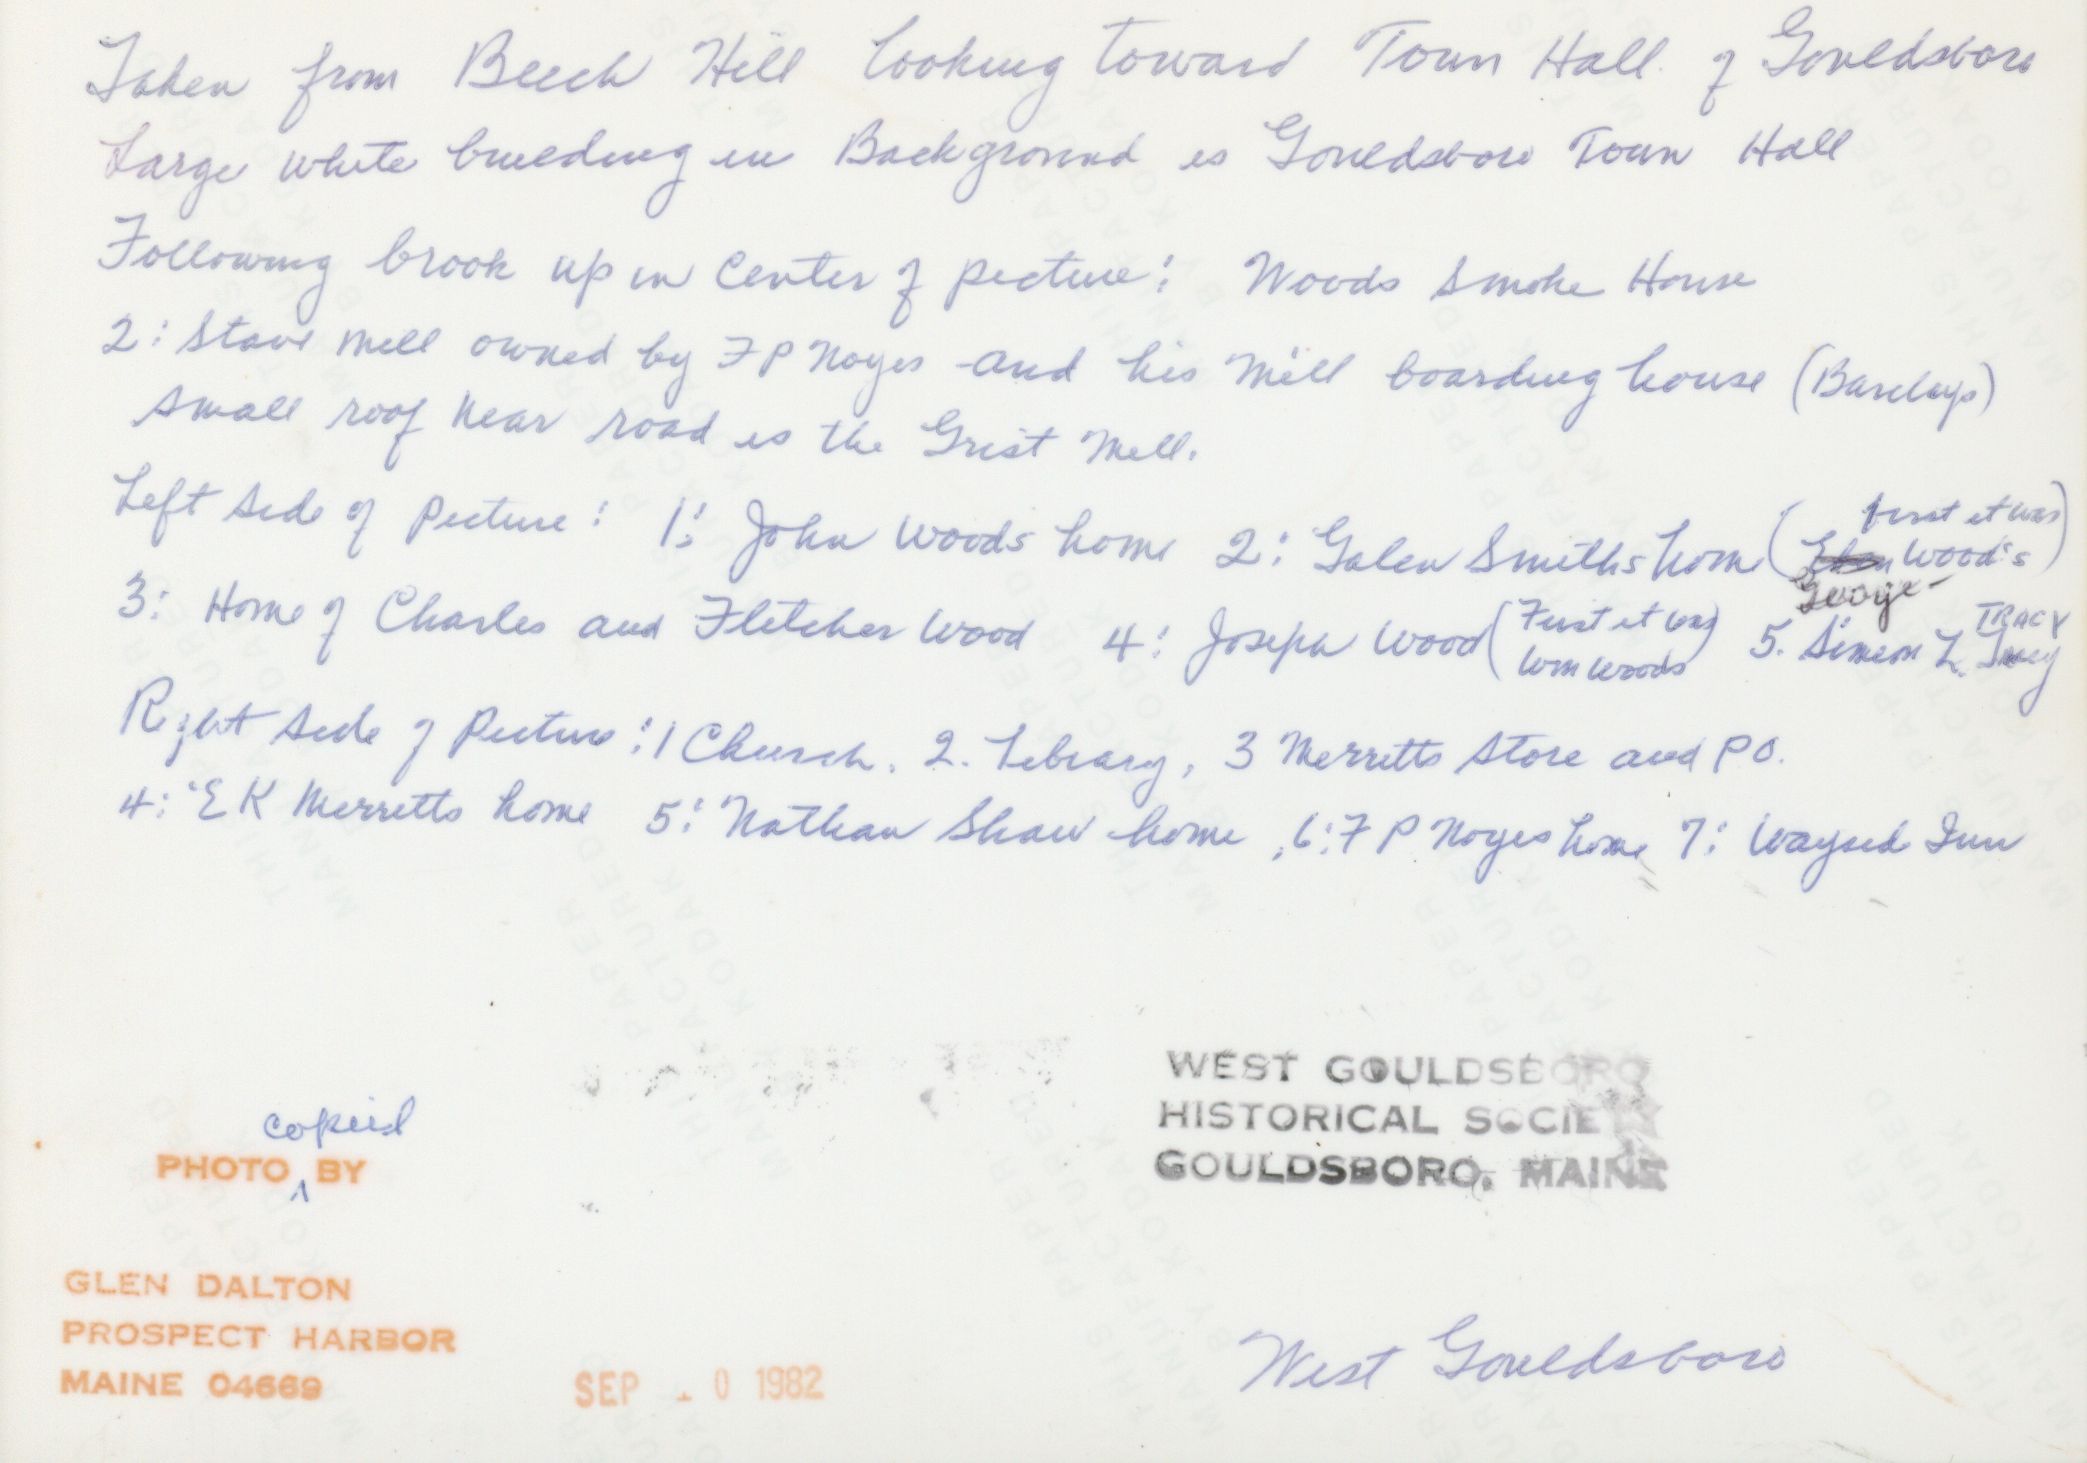 Taken from Beech Hill looking toward Town Hall of Gouldsboro
Large white building in Background is Gouldsboro Town Hall
Following brook up in center of picture: Woods Smoke House
2: Stave mill owned by F P Noyes and his mill boarding house (Barclays)
small roof near road is the Grist Mill.
Left side of Picture: 1: John Woods home 2: Galen Smiths home (first it was
Wood's)
George
3: Home of Charles and Fletcher Wood 4: Joseph Wood (First it was
Wm Woods) 5. Simeon L. Tracy
TRACY
Right side of Picture: 1 Church, 2. Library, 3 Merritts Store and P O.
4: E K Merritts home 5: Nathan Shaw home, 6: F P Noyes home 7: Waysid Inn
copied
PHOTO ^ BY
GLEN DALTON
PROSPECT HARBOR
MAINE 04669
SEP 0 1982
WEST GOULDSBORO
HISTORICAL SOCIETY
GOULDSBORO, MAINE
West Gouldsboro
THIS PAPER
MANUFACTURED
BY KODAK